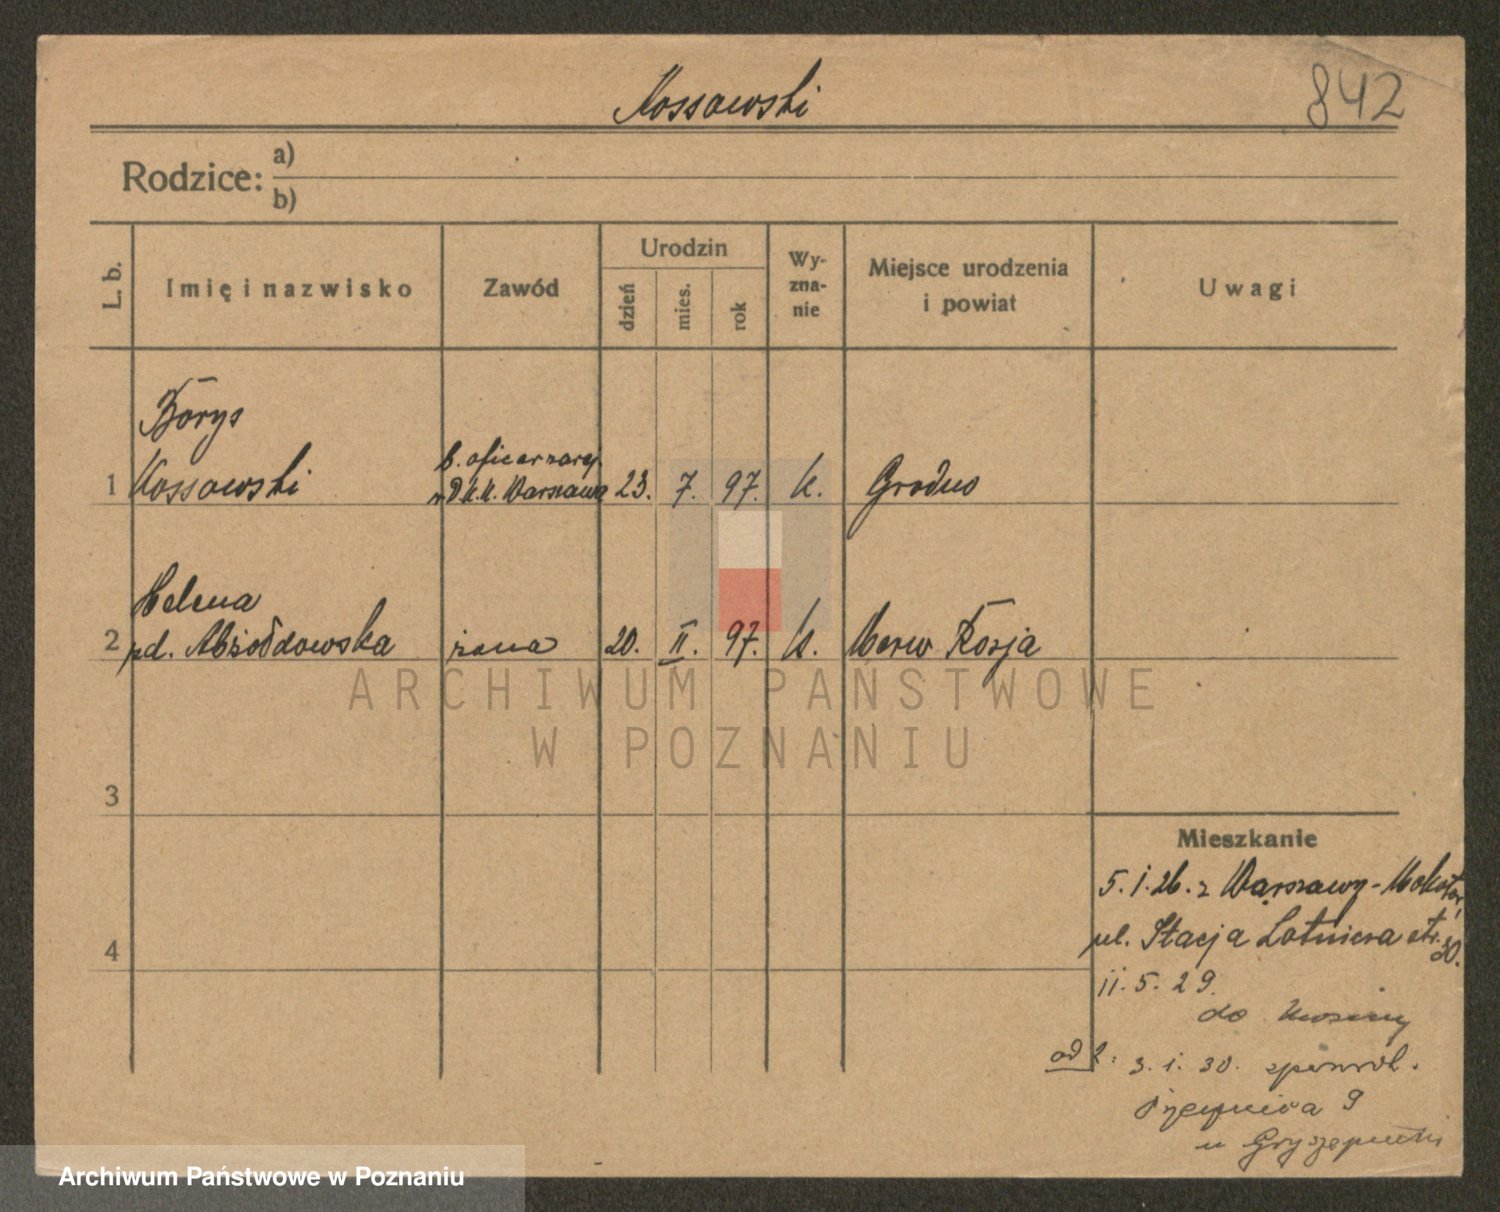 Kossowski
842
Rodzice: a)
b)
L. b.
Imię i nazwisko
Zawód
Urodzin
dzień
mies.
rok
Wy-
zna-
nie
Miejsce urodzenia
i powiat
Uwagi
Borys
b. oficer
1 Kossowski Warszawa 23. 7. 97. k. Grodno
Helena
2 żona 20. II. 97. k. Merw Rosja
ARCHIWUM PAŃSTWOWE
W POZNANIU
3
Mieszkanie
5. I. 26. z Warszawy - Mokotów
ul. Stacja Lotnicza 30.
4
11. 5. 29.
do
od 3. 1. 30.
9
u
Archiwum Państwowe w Poznaniu